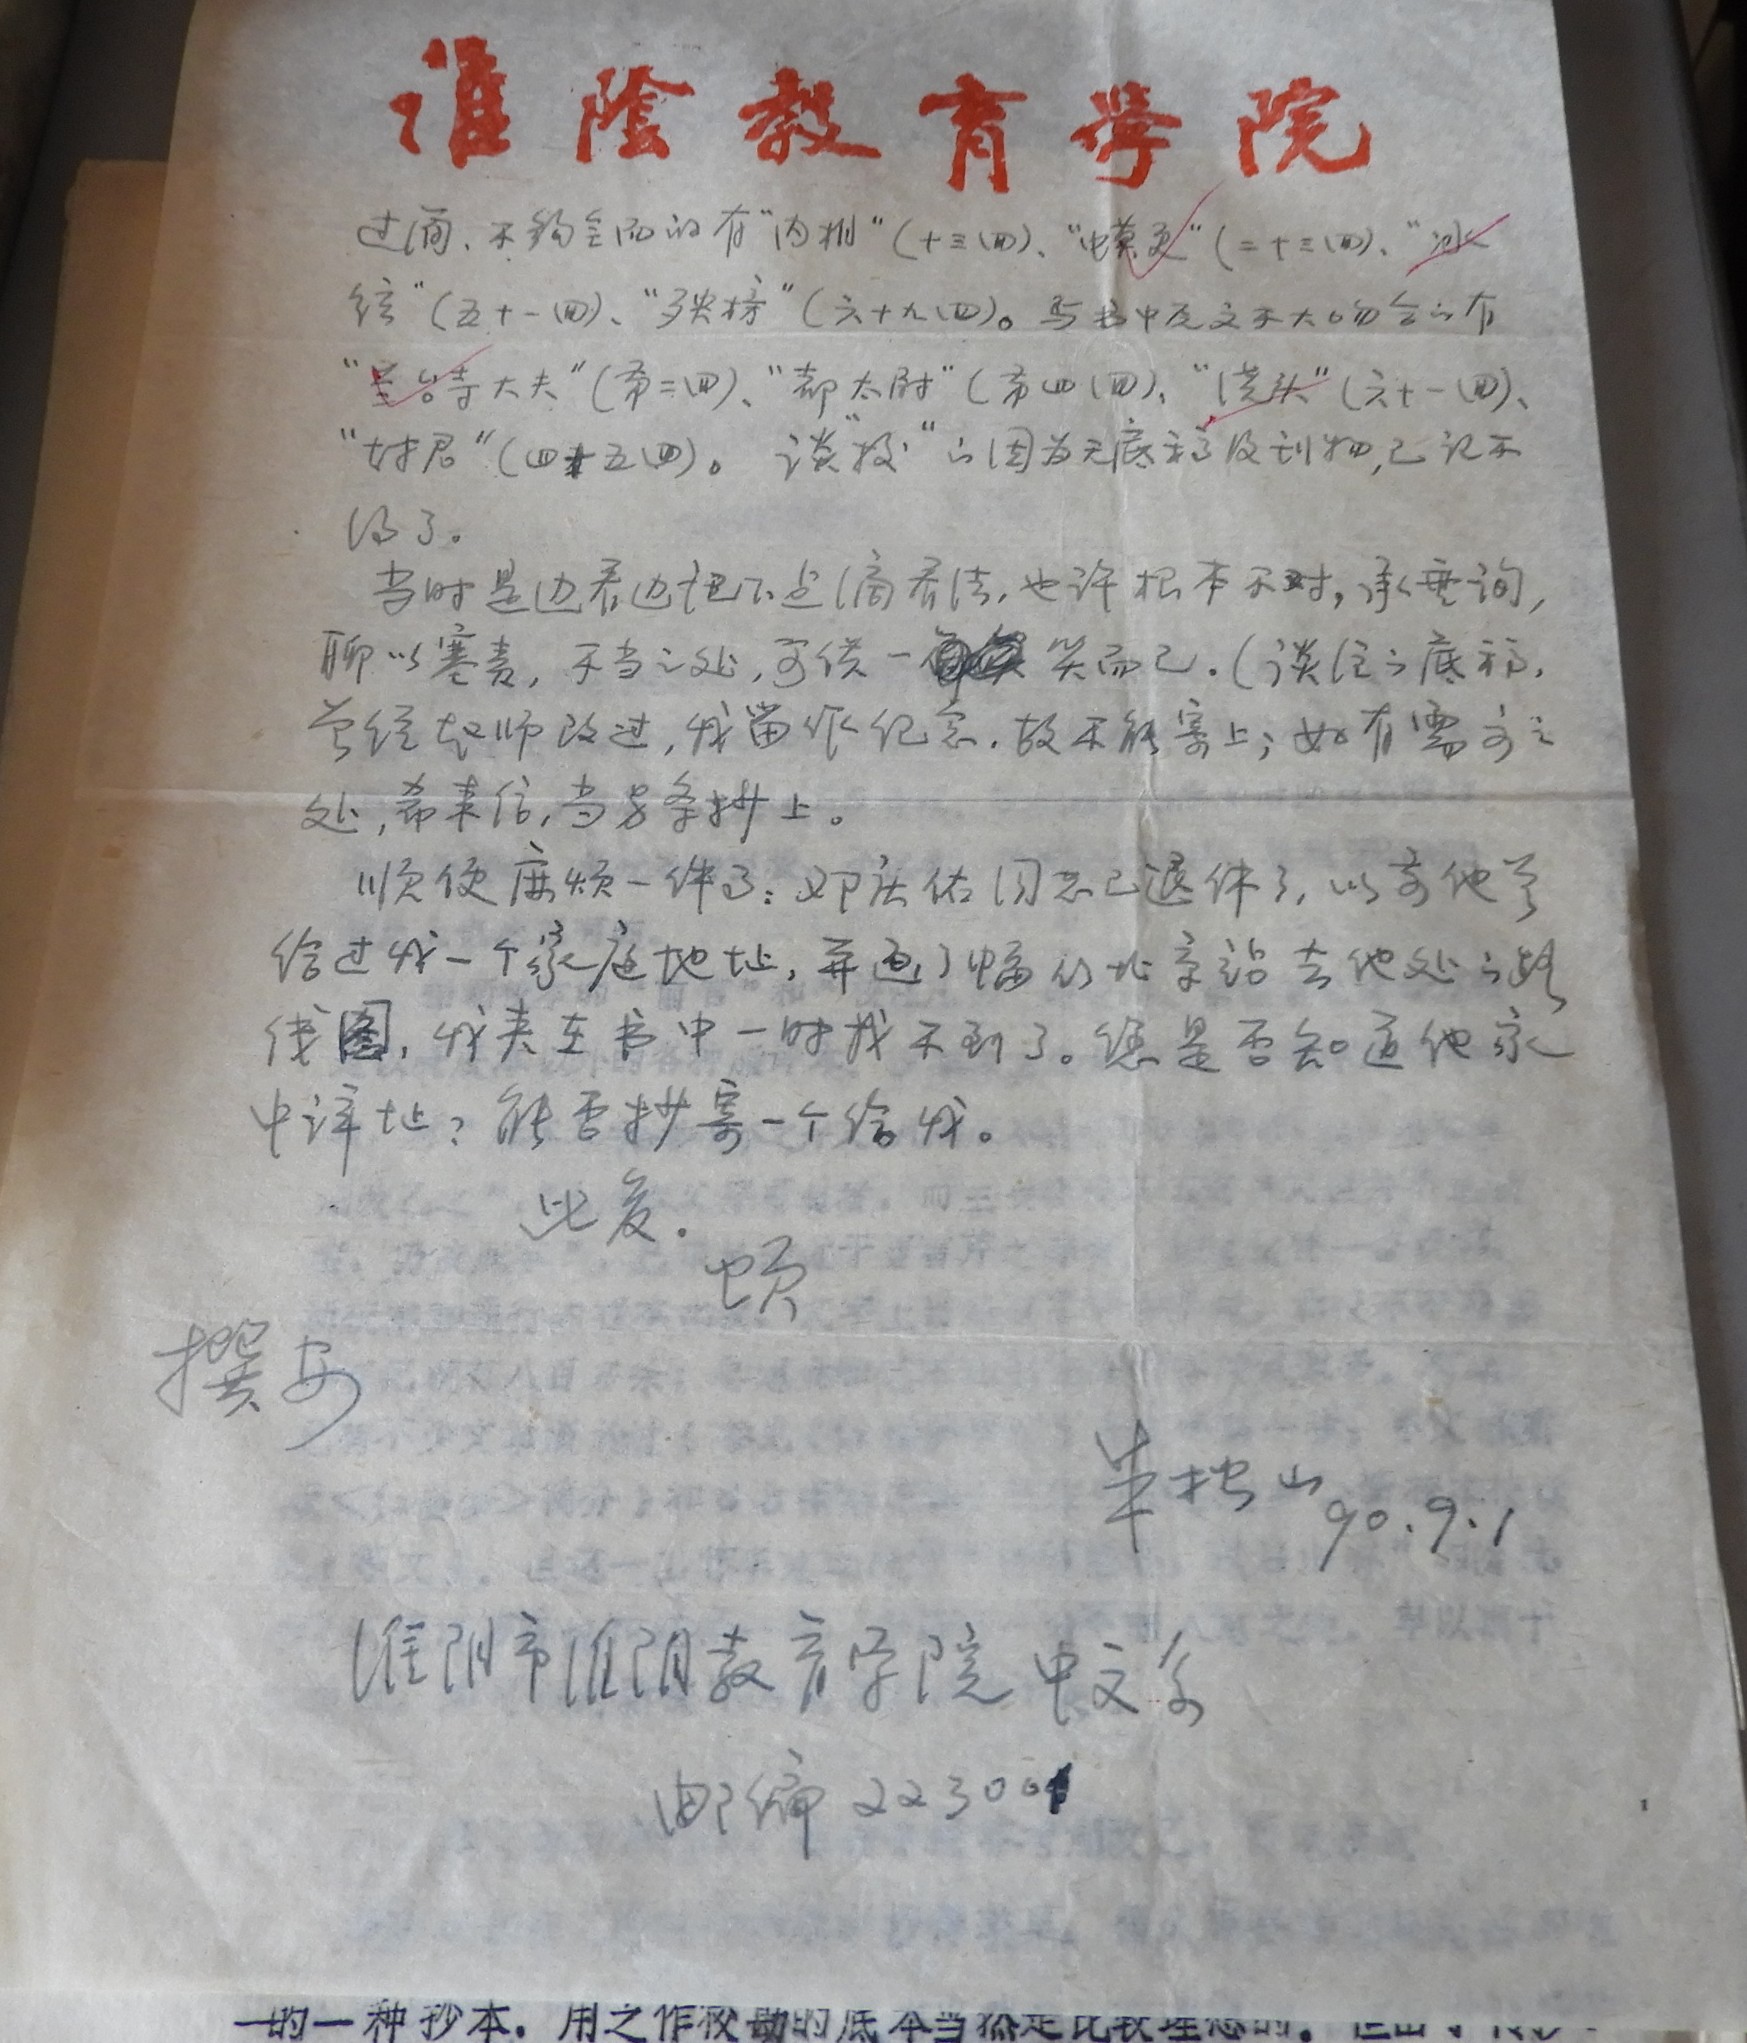 淮陰教育學院
过简、不够全面的有“内相”(十三回)、“蟆更”(二十三回)、“冰
弦”(五十一回)、“殃榜”(六十九回)。与书中原文不大吻合的有
“兰台寺大夫”(第二回)、“都太尉”(第四回)、“馒头”(六十一回)、
(四十五回)。谈“校”的因为无底稿及刊物,已记不
得了。
当时是边看边记下点滴看法,也许根本不对,承垂询,
聊以塞责,不当之处,可供一笑而已.(谈注的底稿,
曾经老师改过,我留作纪念.故不能寄上;如有需要之
处,希来信,当另条抄上。
顺便麻烦一件事:邓庆佑同志已退休了,以前他曾
给过我一个家庭地址,并画了幅从北京站去他处的路
线图,我夹在书中一时找不到了。您是否知道他家
中详址?能否抄寄一个给我。
此复.
顿
撰安
朱拙山 90.9.1
淮阴市淮阴教育学院中文系
邮编 223001
的一种抄本.用之作校勘的底本当然是比较理想的.但由于